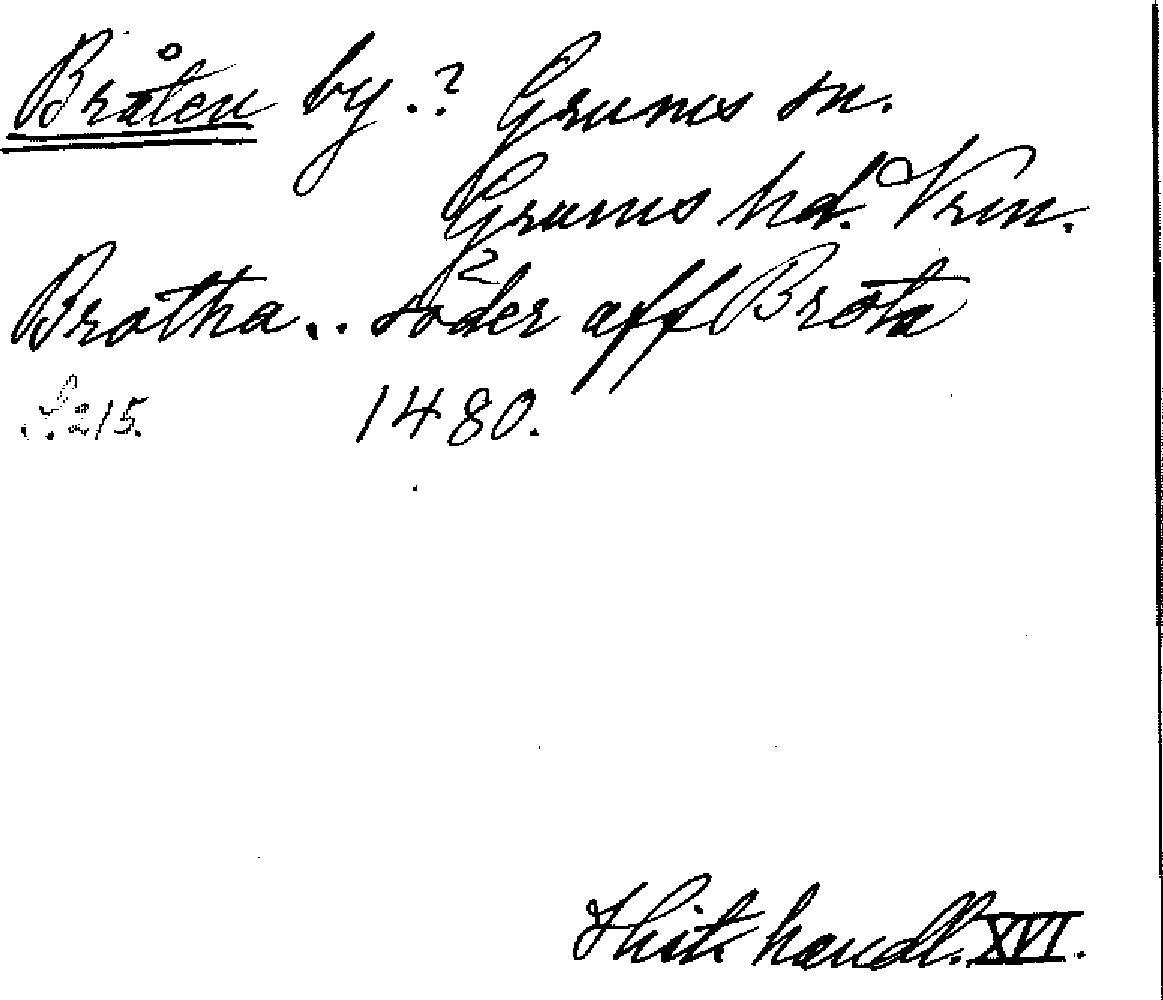 Bråten by.? Grums sn.
Grums hd. Vrm.
Brotha .. söder aff Brota
S. 215. 1480.
Hist handl. XVI.